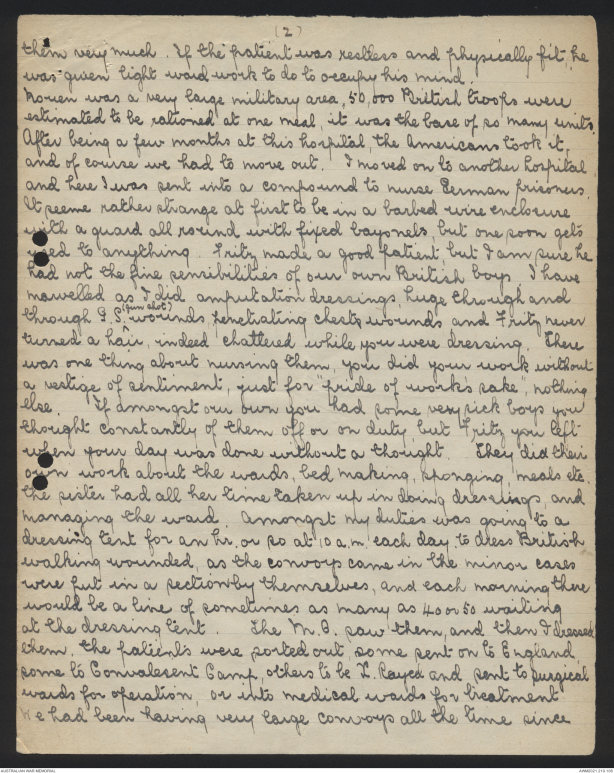 (2)
them very much. If the patient was restless and physically fit, he
was given light ward work to do to occupy his mind.
Rouen was a very large military area, 50,000 British troops were
estimated to be rationed at one meal, it was the base of so many units.
After being a few months at this hospital, the Americans took it,
and of course we had to move out. I moved on to another hospital
and here I was sent into a compound to nurse German prisoners.
It seems rather strange at first to be in a barbed wire enclosure
with a guard all round with fixed bayonets, but one soon gets
used to anything. Fritz made a good patient, but I am sure he
had not the fine sensibilities of our own British boys, I have
marvelled as I did amputation dressings, huge through and
through G.S. (gun shot) wounds, penetrating chest wounds and Fritz never
turned a hair, indeed chattered while you were dressing. There
was one thing about nursing them, you did your work without
a vestige of sentiment, just for "pride of work's sake", nothing
else. If amongst our own you had some very sick boys you
thought constantly of them off or on duty but Fritz you left
when your day was done without a thought. They did their
own work about the wards, bed making, sponging, meals etc.
the sister had all her time taken up in doing dressings, and
managing the ward. Amongst my duties was going to a
dressing tent for an hr. or so at 10 a.m. each day to dress British
walking wounded, as the convoys came in the minor cases
were put in a section by themselves, and each morning there
would be a line of sometimes as many as 40 or 50 waiting
at the dressing tent. The M.O. saw them, and then I dressed
them. The patients were sorted out some sent on to England
some to Convalesent Camp, others to be X.Rayed and sent to surgical
wards for operation, or into medical wards for treatment
We had been having very large convoys all the time since
AUSTRALIAN WAR MEMORIAL